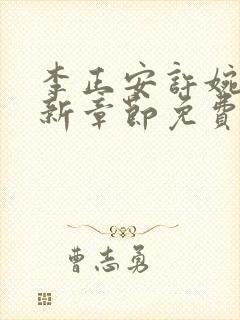 李正安許婉
新章節免費
曹志勇